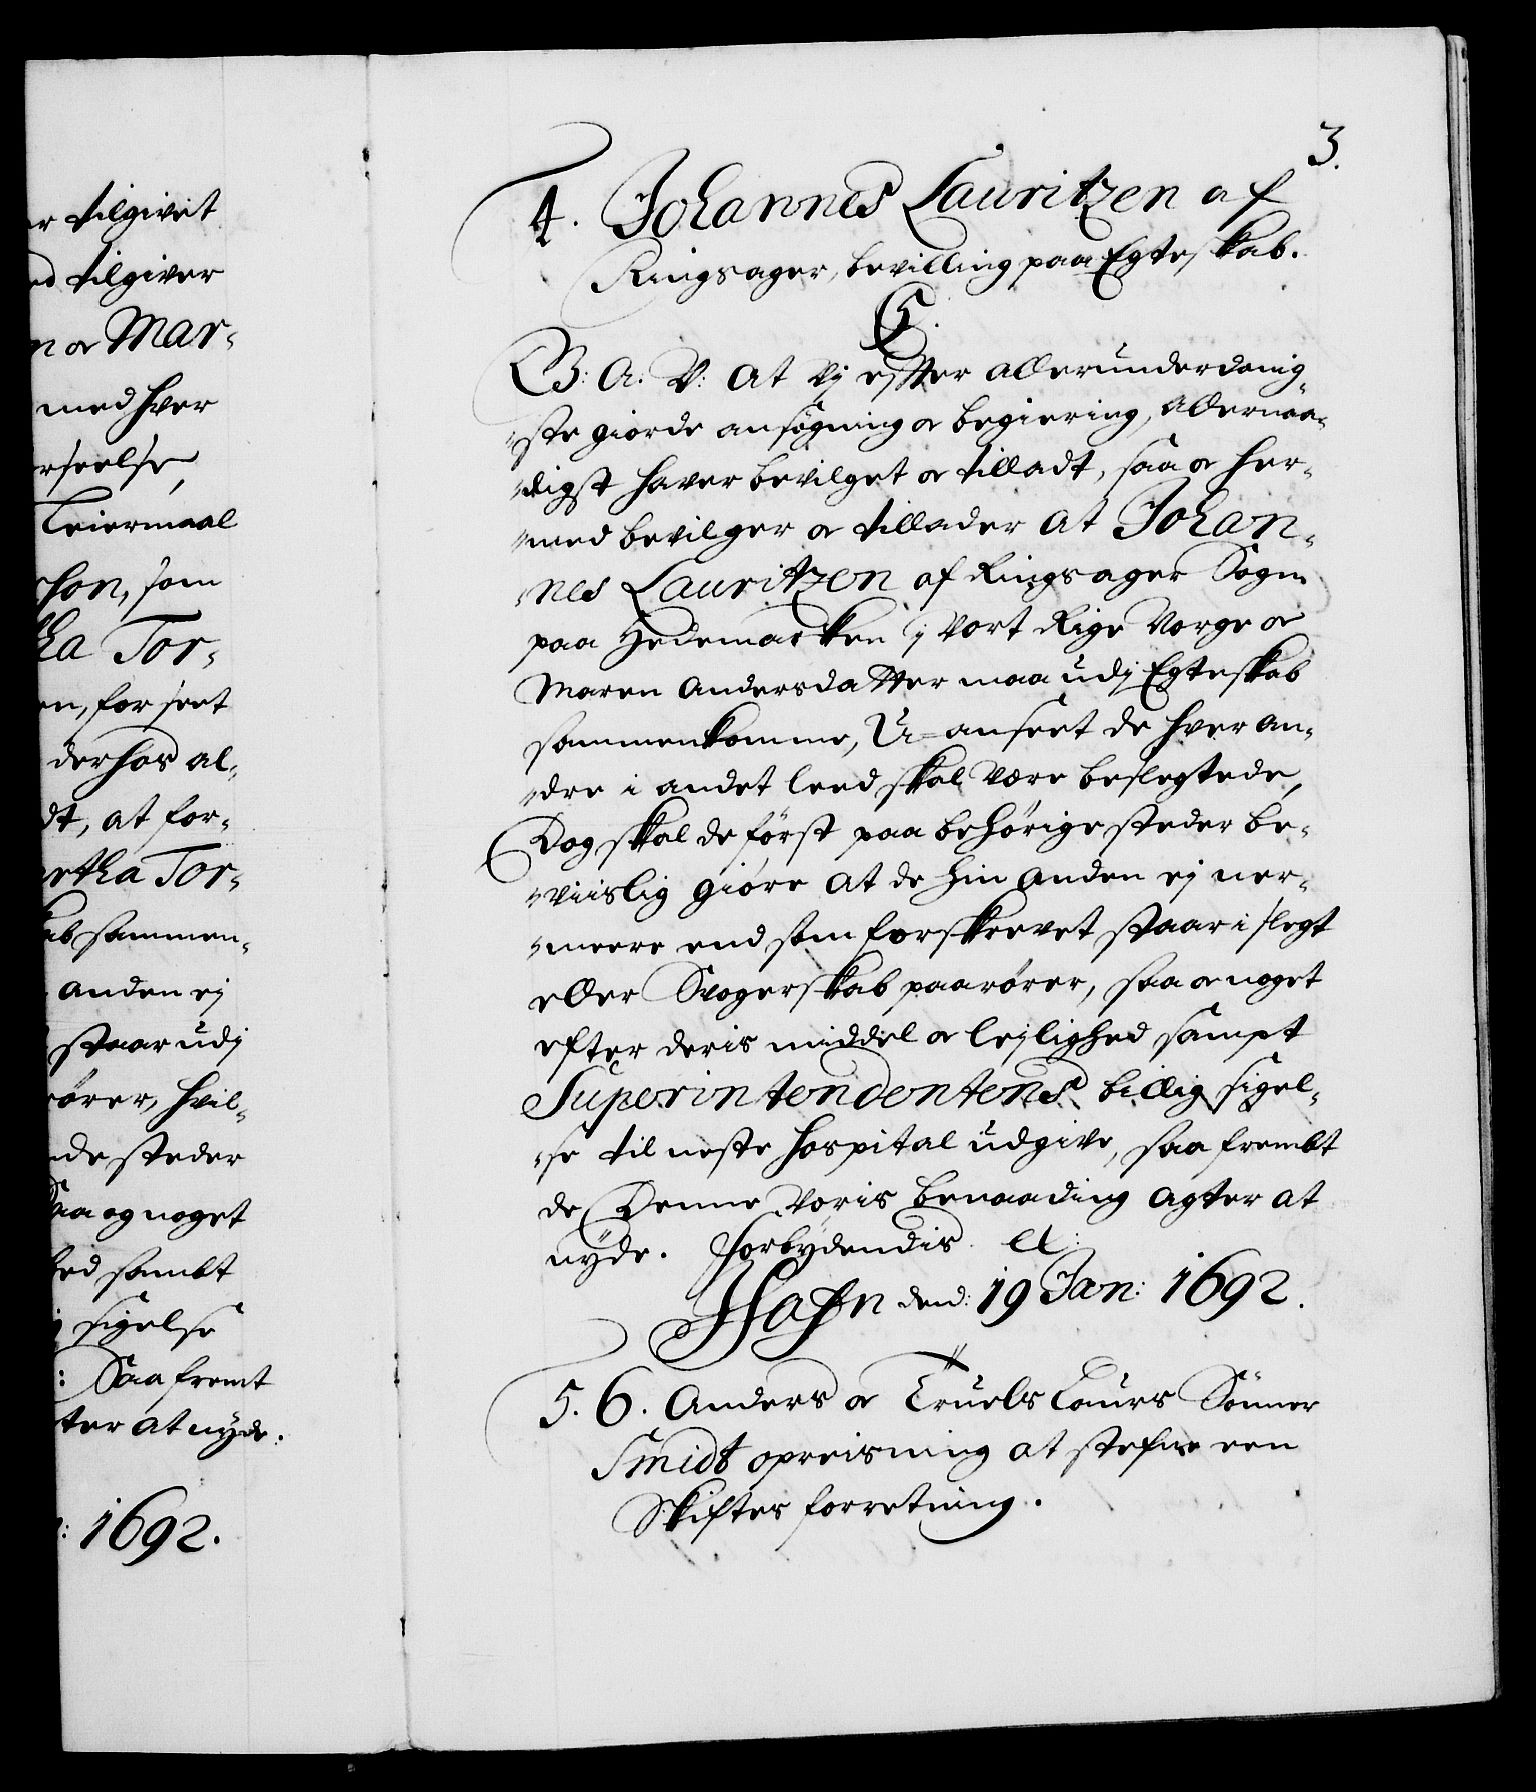 er tilgivet
ed tilgiver
n or Mar-
med hver
rseelse,
Leiermaal
son, som
tha Tor-
en, forseet
derhos al-
dt, at for-
rtha Tor-
ab sammen-
anden ej
staar udj
rører, hvil-
nde steder
Saa og noget
hed sambt
sigelse
: Saa fremt
ter at nyde.
: 1692.
3.
4. Johannes Lauritzen af
Ringsager, bevilling paa Egteskab.
C 5.
B: A: V: At Vj effter allerunderdanig-
ste giorde ansøgning or begiering, allernaa-
digst haver bevilget or tilladt, saa or her-
med bevilger or tillader at Johan-
nes Lauritzen af Ringsager Sogn
paa Hedemarken j Vort Rige Norge or
Maren Andersdatter maa udj Egteskab
sammenkomme, U-anseet de hver an-
dre i andet leed skal være beslegtede,
Dog skal de først paa behørige steder be-
viislig giøre at de hin anden ej ner-
meere end som forskrevet staar i slegt
eller Svogerskab paarører, saa or noget
efter deris middel or lejlighed sampt
Superintendentens billig sigel-
se til neste Hospital udgive, saa frembt
de Denne Voris benaading agter at
nyde. Forbydendis etc:
Hafn dend: 19 Jan: 1692.
5. 6. Anders or Truels Laurs Sønner
Smidt opreisning at stefne een
Skiftes forretning.